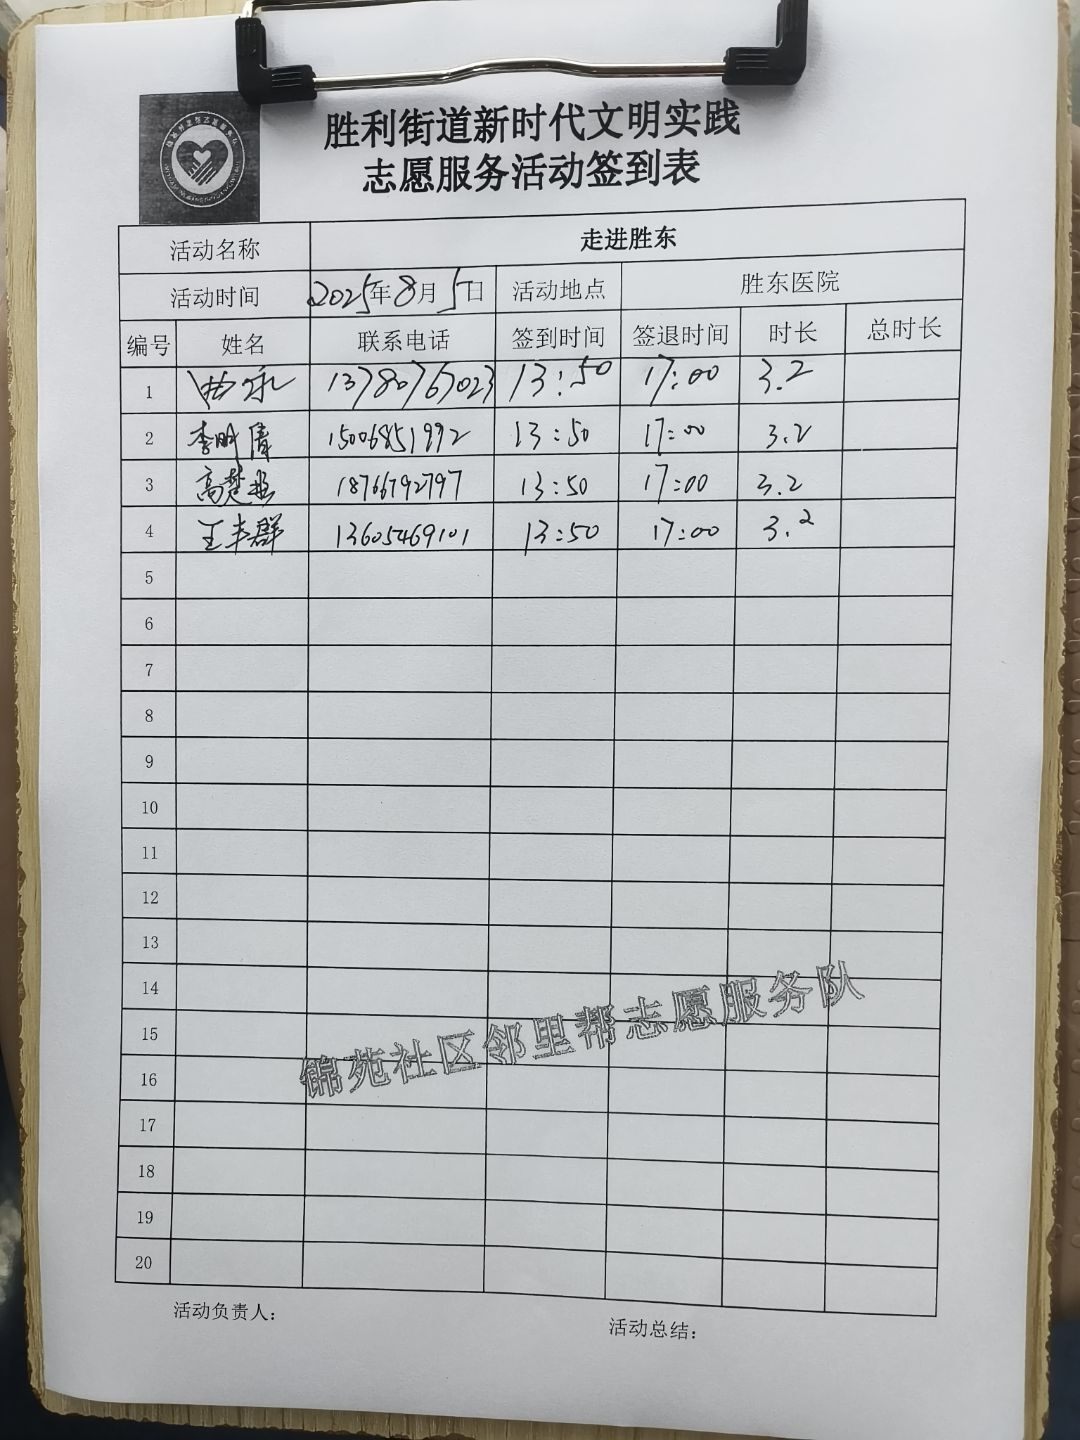 胜利街道新时代文明实践
志愿服务活动签到表
活动名称 走进胜东
活动时间 2025年8月5日 活动地点 胜东医院
编号 姓名 联系电话 签到时间 签退时间 时长 总时长
1 13780767023 13:50 17:00 3.2
2 李明清 15006851992 13:50 17:00 3.2
3 高楚 18766792797 13:50 17:00 3.2
4 王丰群 13605469101 13:50 17:00 3.2
5
6
7
8
9
10
11
12
13
14
15
16
17
18
19
20
锦苑社区邻里帮志愿服务队
活动负责人:
活动总结: